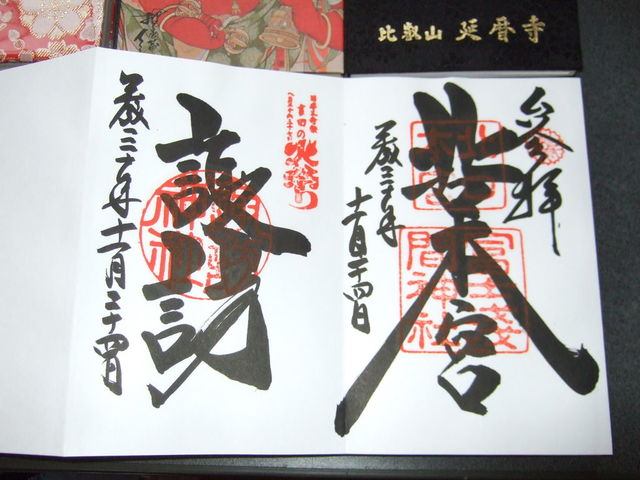 比叡山 延暦寺
参拝
北口本宮
冨士浅間神社
平成三十年
十一月二十四日
日本三奇祭
吉田の火祭り
諏訪
諏訪神社
平成三十年十一月二十四日